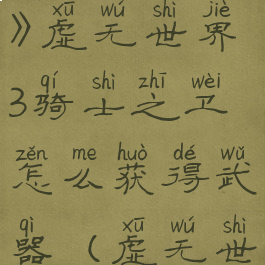 xū wú shì jiè
》虚无世界
qí shì zhī wèi
3骑士之卫
zěn me huò dé wǔ
怎么获得武
qì xū wú shì
器（虚无世